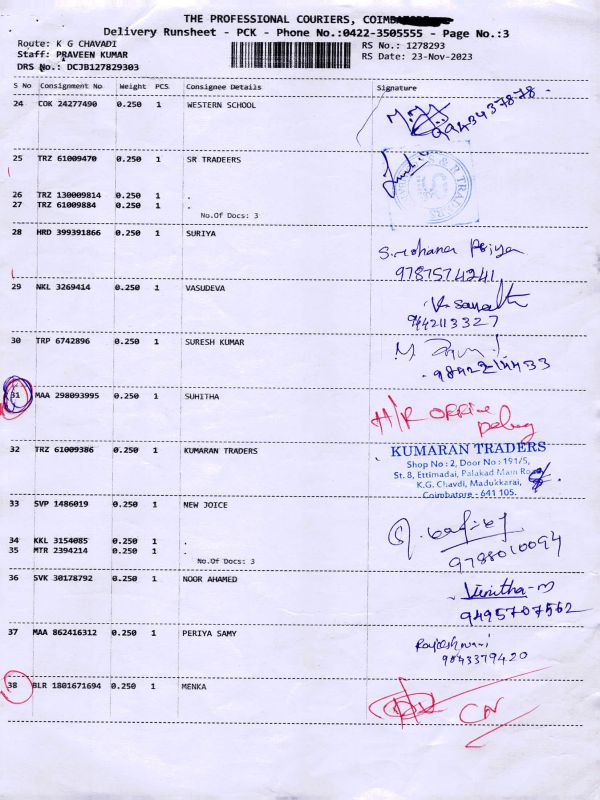 THE PROFESSIONAL COURIERS,
Delivery Runsheet - PCK - Phone No.:0422-3505555 - Page No.:3
Route: K G CHAVADI RS No.: 1278293
Staff: PRAVEEN KUMAR RS Date: 23-Nov-2023
DRS No.: DCJB127829303
S No Consignment No Weight PCS Consignee Details Signature
24 COK 24277490 0.250 1 WESTERN SCHOOL
9943437878
25 TRZ 61009470 0.250 1 SR TRADEERS
26 TRZ 130009814 0.250 1 .
27 TRZ 61009884 0.250 1 .
No.Of Docs: 3
28 HRD 399391866 0.250 1 SURIYA
S. Mohana Priya
9787574241
29 NKL 3269414 0.250 1 VASUDEVA
9442113327
30 TRP 6742896 0.250 1 SURESH KUMAR
31 MAA 298093995 0.250 1 SUHITHA
H/R OFFice
32 TRZ 61009386 0.250 1 KUMARAN TRADERS
KUMARAN TRADERS
Shop No : 2, Door No : 191/5,
St. 8, Ettimadai, Palakad Main Road
K.G. Chavdi, Madukkarai,
Coimbatore - 641 105.
33 SVP 1486019 0.250 1 NEW JOICE
9788010094
34 KKL 3154085 0.250 1 .
35 MTR 2394214 0.250 1 .
No.Of Docs: 3
36 SVK 30178792 0.250 1 NOOR AHAMED
Vinitha-m
9495707562
37 MAA 862416312 0.250 1 PERIYA SAMY
Rajeshwari
9043379420
38 BLR 1801671694 0.250 1 MENKA
CN